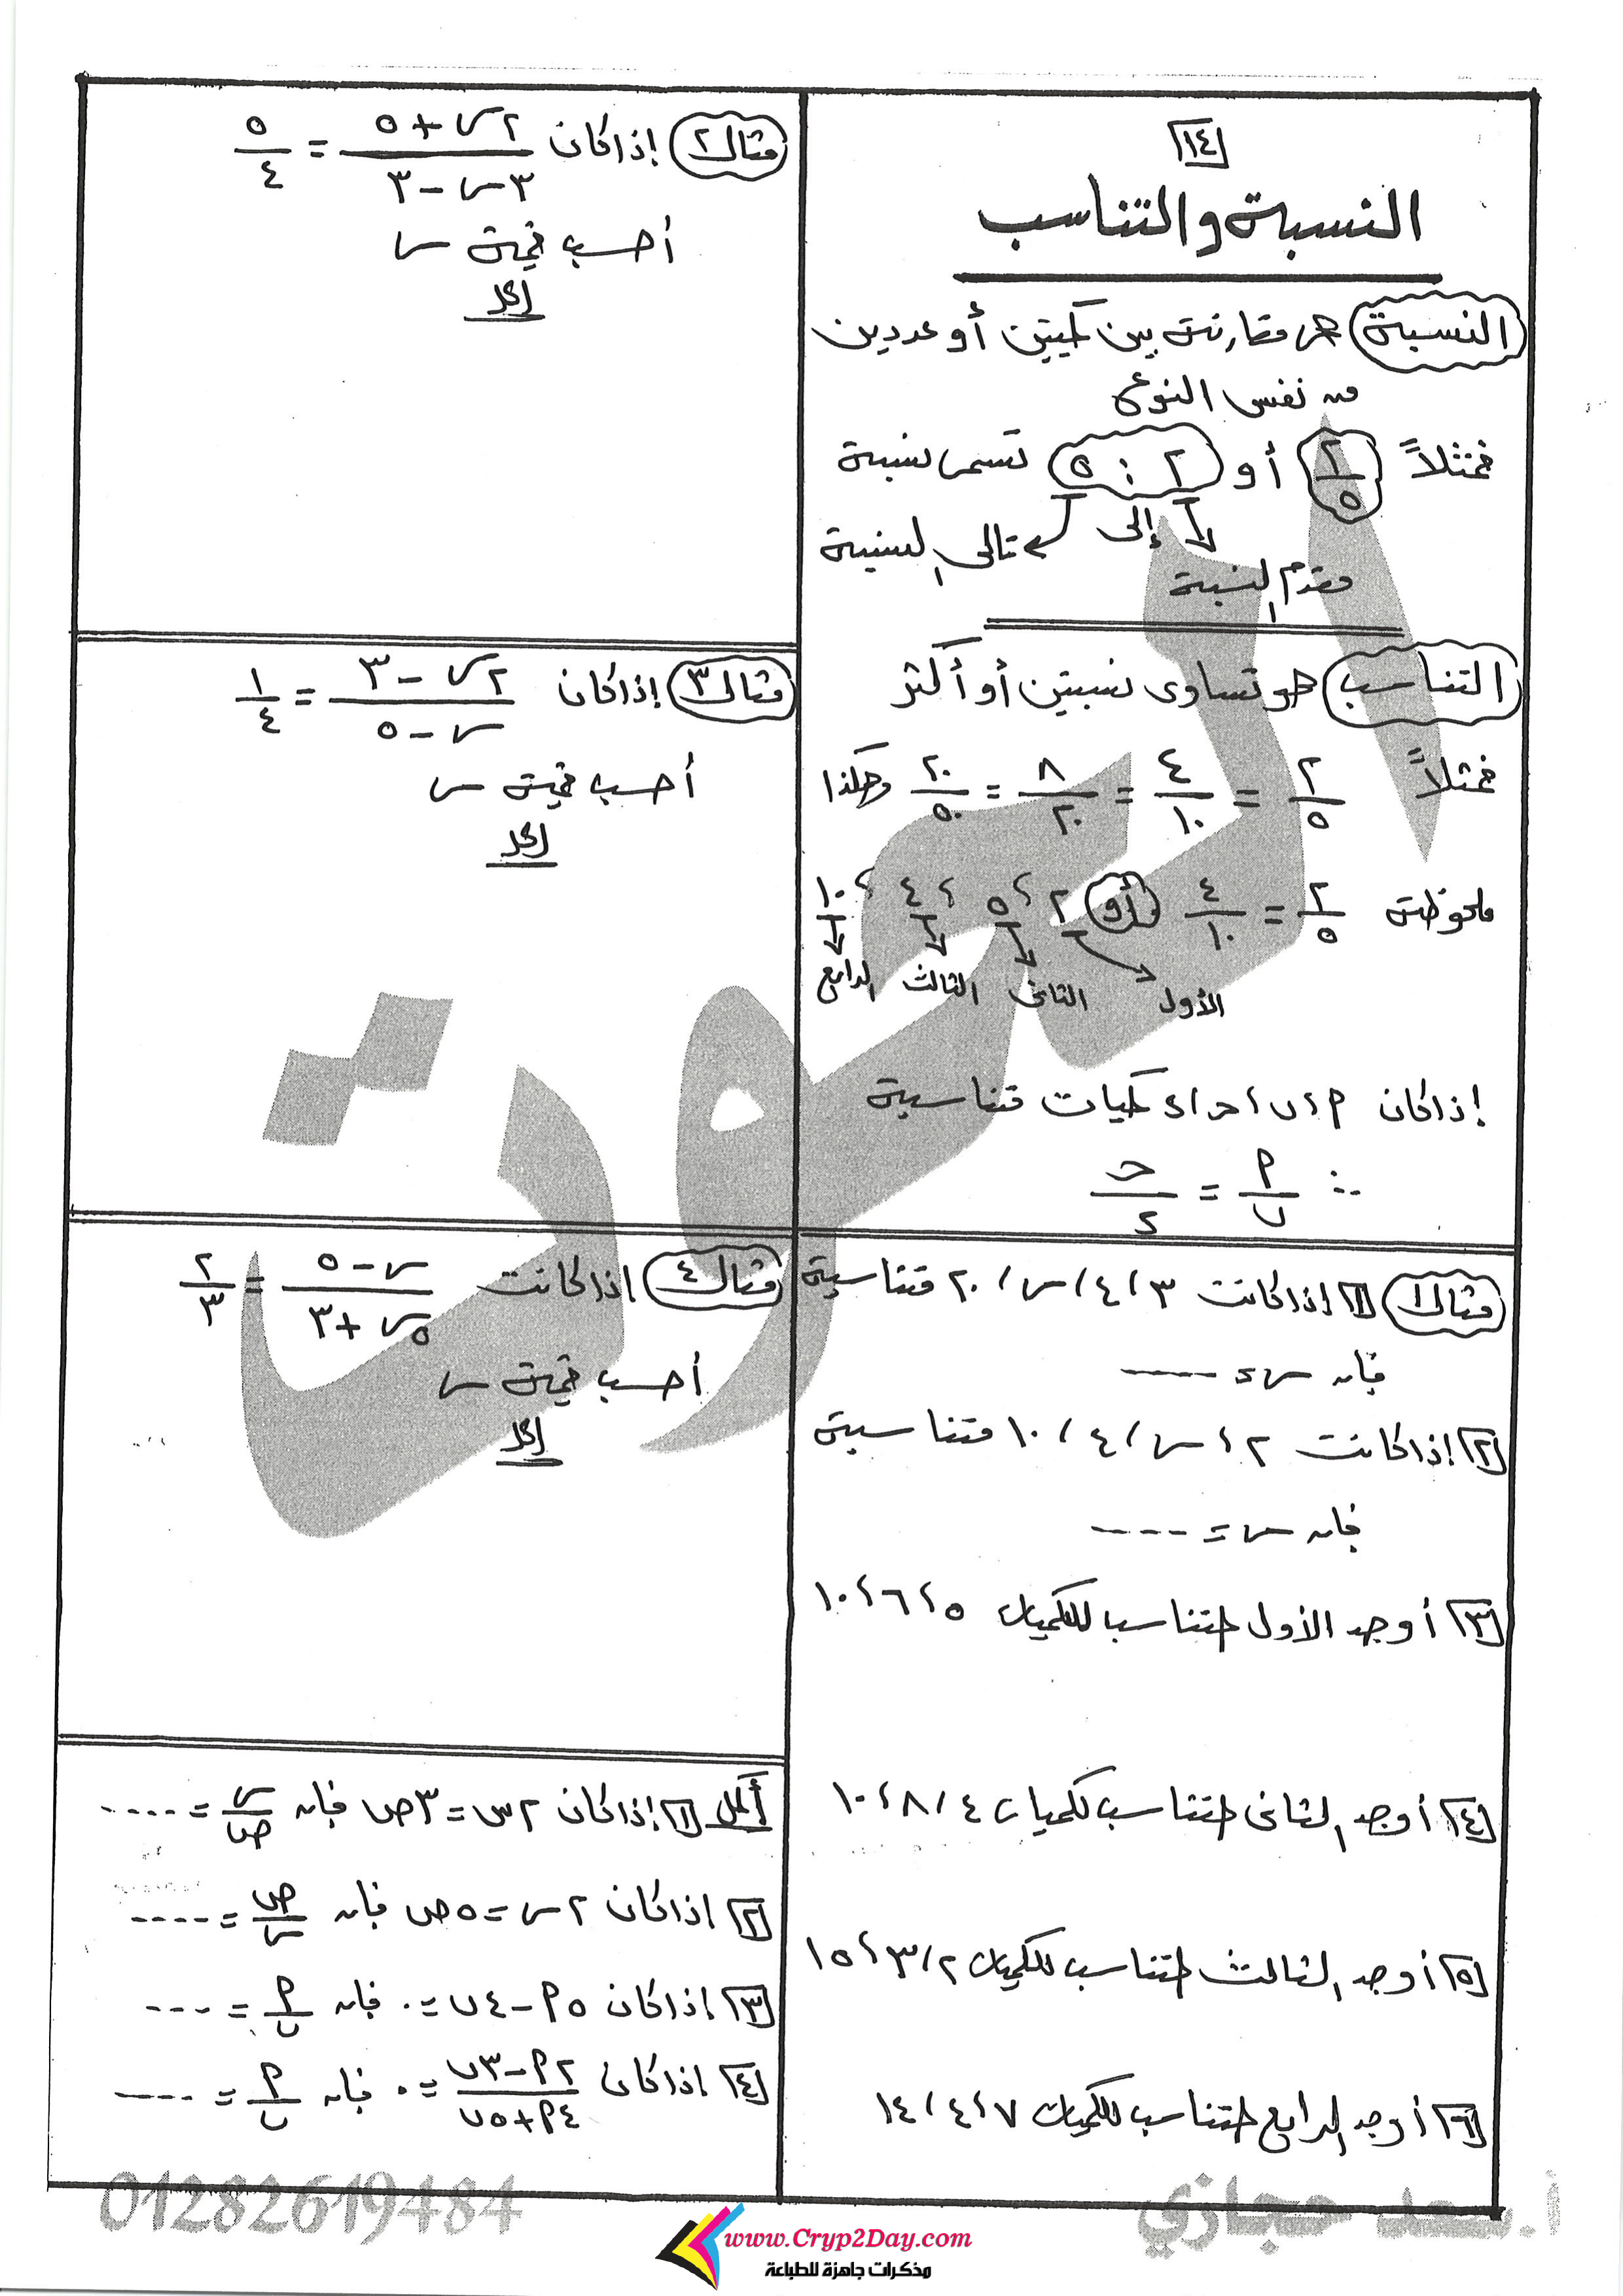 ١٤
النسبة والتناسب
النسبة هى مقارنة بين كميتين أو عددين
من نفس النوع
فمثلاً ٢/٥ أو ٢ : ٥ تسمى نسبة
إلى تالى النسبة
مقدم النسبة
التناسب هو تساوى نسبتين أو أكثر
فمثلاً ٢/٥ = ٤/١٠ = ٨/٢٠ = ٢٠/٥٠ وهكذا
ملحوظة ٢/٥ = ٤/١٠ أو ٢ ، ٥ ، ٤ ، ١٠
الأول الثانى الثالث الرابع
إذا كان م ، ب ، ح ، د كميات متناسبة
∴ م/ب = ح/د
مثال ١ [١] إذا كانت ٣ ، ٤ ، س ، ٢٠ متناسبة
فإن س = ----
[٢] إذا كانت ٢ ، س ، ٤ ، ١٠ متناسبة
فإن س = ----
[٣] أوجد الأول المتناسب للكميات ٥ ، ٦ ، ١٠
[٤] أوجد الثانى المتناسب لكميات ٤ ، ٨ ، ١٠
[٥] أوجد الثالث المتناسب للكميات ٢ ، ٣ ، ١٥
[٦] أوجد الرابع المتناسب للكميات ٧ ، ٤ ، ١٤
مثال ٢ إذا كان (٢س + ٥)/(٣س - ٣) = ٥/٤
أحسب قيمة س
الحل
مثال ٣ إذا كان (٢س - ٣)/(س - ٥) = ١/٤
أحسب قيمة س
الحل
مثال ٤ إذا كانت (س - ٥)/(٥س + ٣) = ٢/٣
أحسب قيمة س
الحل
أكمل [١] إذا كان ٢س = ٣ص فإن س/ص = ----
[٢] إذا كان ٢س = ٥ص فإن ص/س = ----
[٣] إذا كان ٥م - ٤ب = ٠ فإن م/ب = ----
[٤] إذا كان (٢م - ٣ب)/(٤م + ٥ب) = ٠ فإن م/ب = ----
أ. سعد حجازي
01282619484
www.Cryp2Day.com
مذكرات جاهزة للطباعة